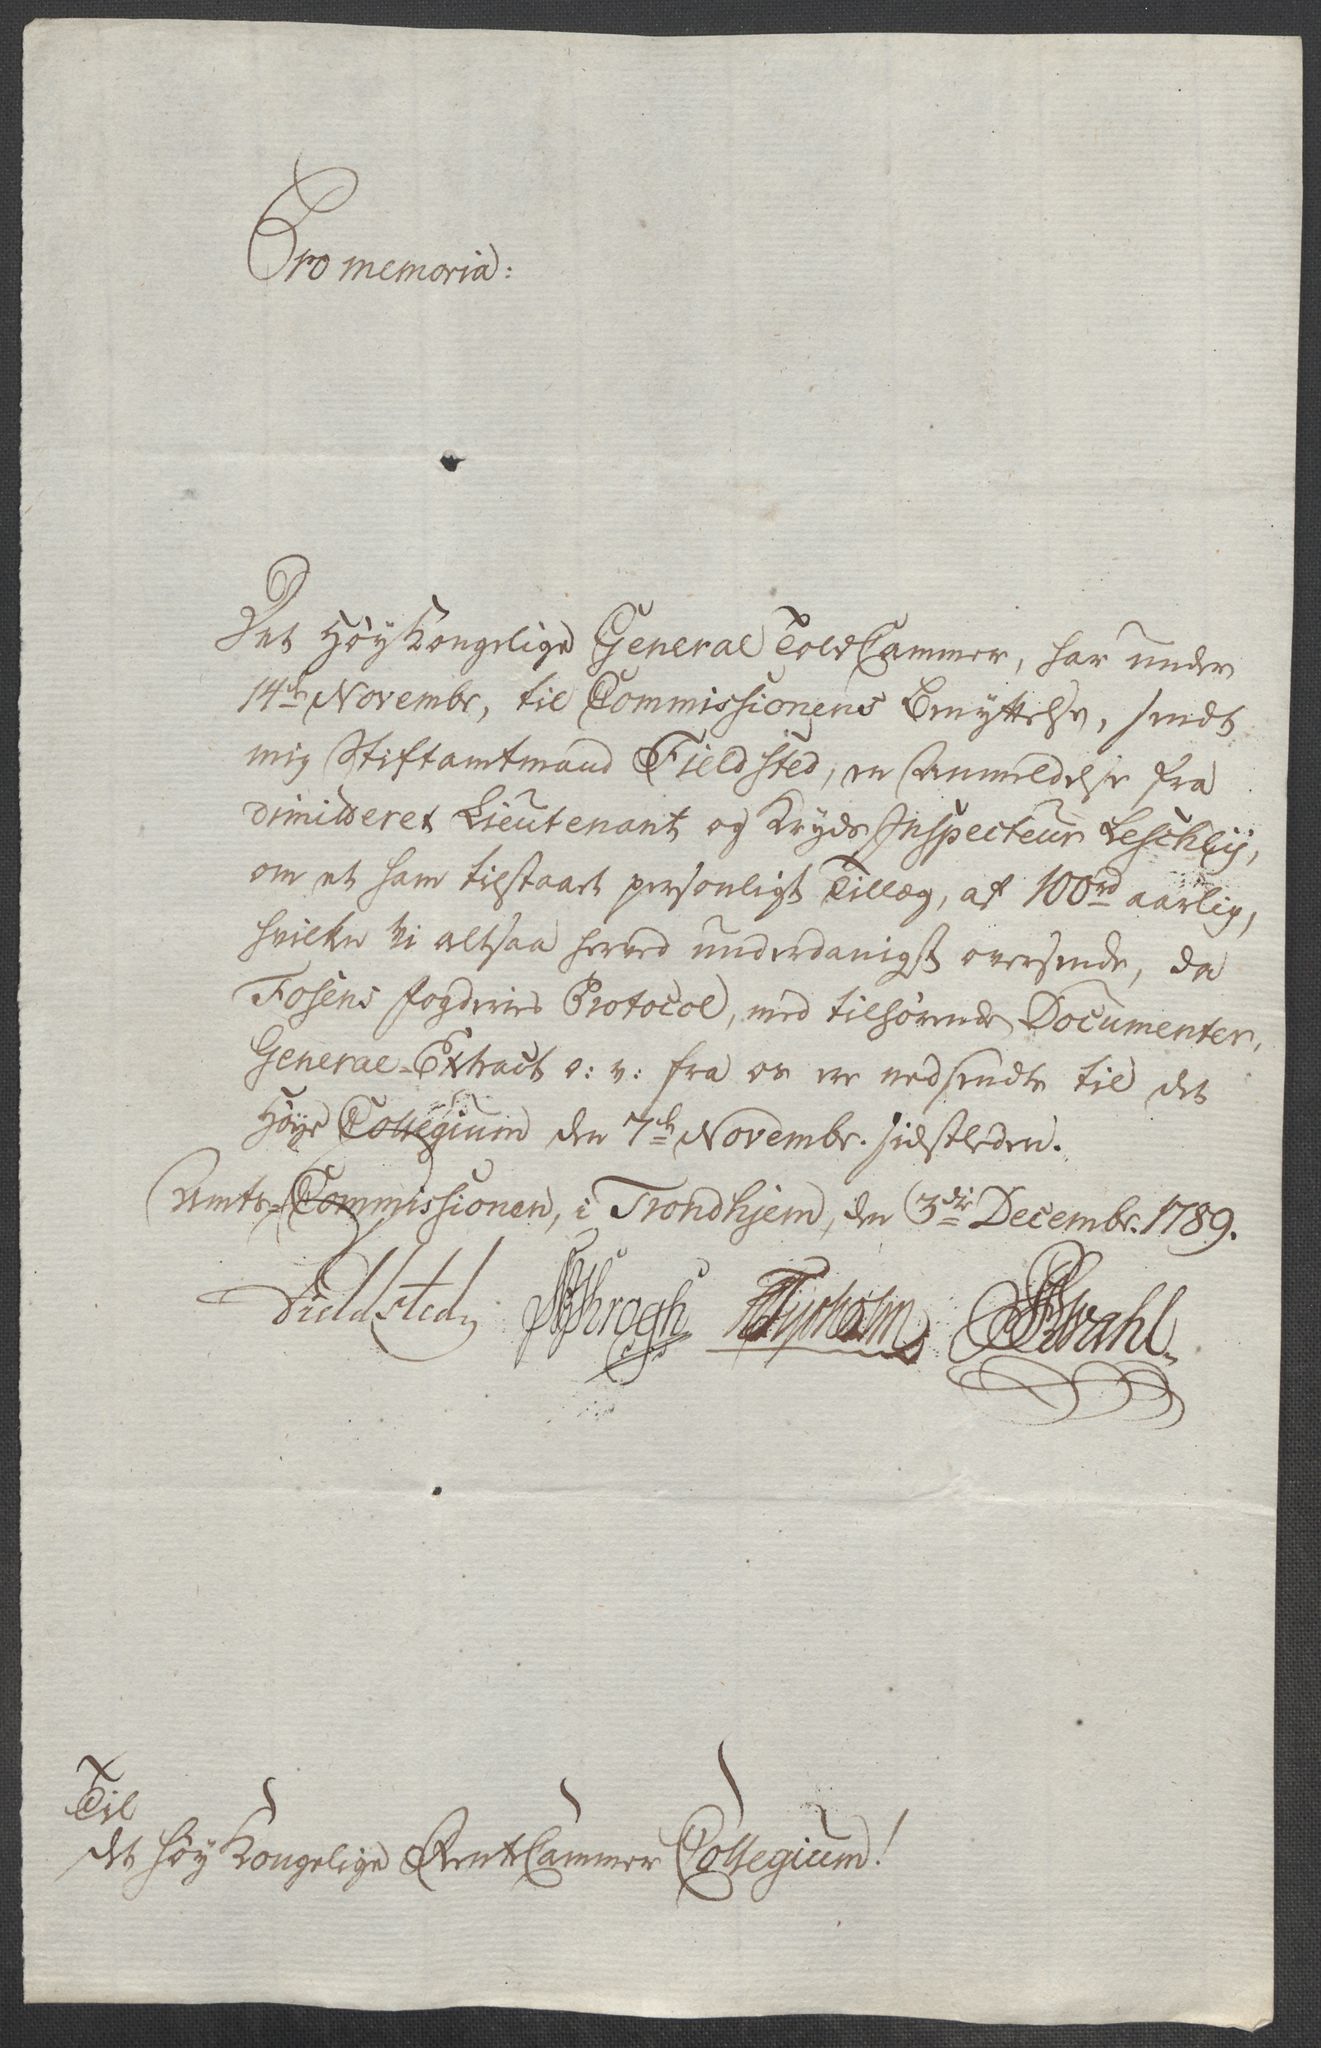 Pro memoria:
Det HöyKongelige General ToldCammer, har under
14de Novembr, til Commissionens Benyttelse, sendt
mig Stiftamtmand Fieldsted, en Anmeldelse fra
dimitteret Lieutenant og Kryds Inspecteur Leschlÿ,
om et ham tilstaaet personligt Tillæg, af 100rd aarlig,
hvilken Vi altsaa herved underdanigst oversende, da
Fosens Fogderies Protocol, med tilhörende Documenter,
General-Extract o: v: fra os ere nedsendte til det
Höye Collegium den 7de Novembr. sidstleden.
Amts-Commissionen, i Trondhjem, den 3die Decembr. 1789.
Fieldsted Khrogh Tyrholm Wahl
Til
det HöyKongelige RentCammer Collegium!